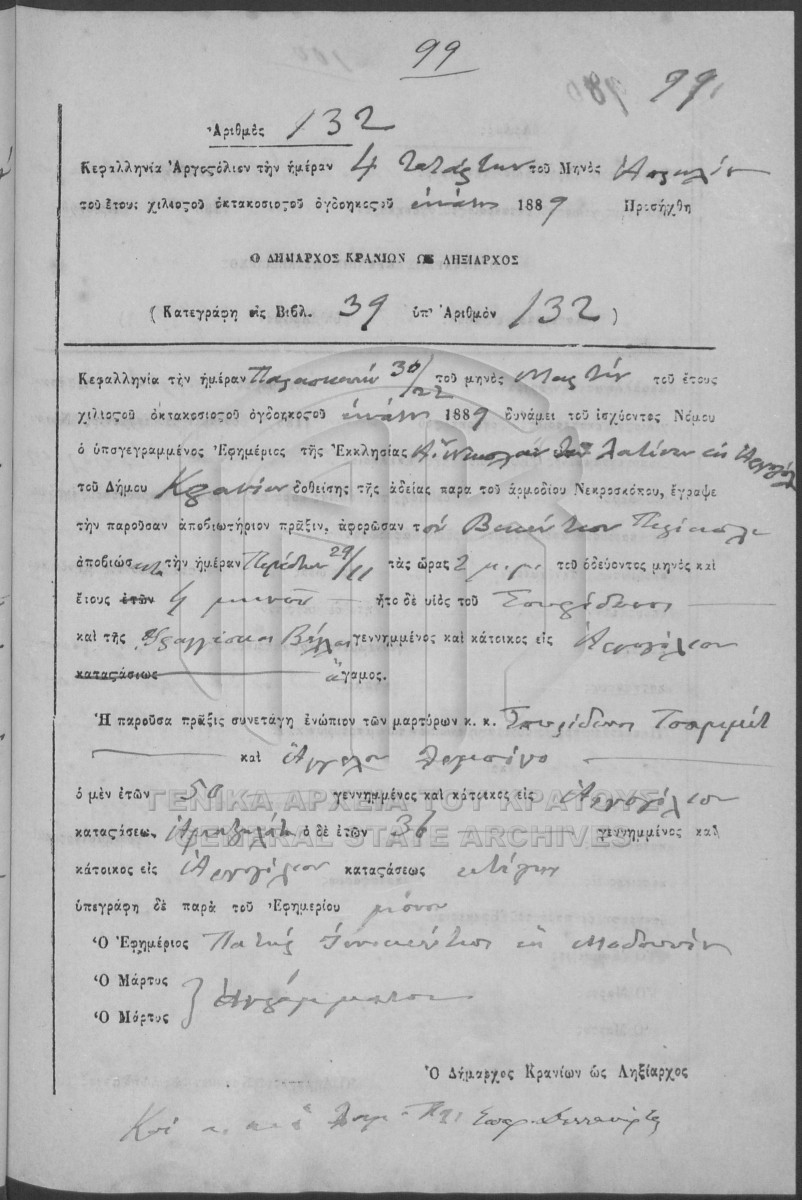 99
99
Ἀριθμὸς 132
Κεφαλληνία Ἀργοςόλιον τὴν ἡμέραν 4 τετάρτην τοῦ Μηνὸς Ἀπριλίου
τοῦ ἔτους χιλιοςοῦ ὀκτακοσιοςοῦ ὀγδοηκοςοῦ ἐννάτου 1889 Προσήχθη
Ο ΔΗΜΑΡΧΟΣ ΚΡΑΝΙΩΝ ΩΣ ΛΗΞΙΑΡΧΟΣ
(Κατεγράφη εἰς Βιβλ. 39 ὑπ' Ἀριθμὸν 132)
Κεφαλληνία τὴν ἡμέραν Παρασκευήν 30/22 τοῦ μηνὸς Μαρτίου τοῦ ἔτους
χιλιοςοῦ ὀκτακοσιοςοῦ ὀγδοηκοςοῦ ἐννάτου 1889 δυνάμει τοῦ ἰσχύοντος Νόμου
ὁ ὑπογεγραμμένος Ἐφημέριος τῆς Ἐκκλησίας Ἁ. Νικολάου τῶν Λατίνων εἰς Ἀργοςόλι
τοῦ Δήμου Κρανίων δοθείσης τῆς ἀδείας παρα τοῦ ἁρμοδίου Νεκροσκόπου, ἔγραψε
τὴν παροῦσαν ἀποβιωτήριον πρᾶξιν, ἀφορῶσαν τὸν
ἀποβιώσαντα τὴν ἡμέραν Πέμπτην 29/ τὰς ὥρας 2 μ.μ. τοῦ ὁδεύοντος μηνὸς καὶ
ἔτους ἐτῶν μηνῶν ἦτο δὲ υἱὸς τοῦ Σπυρίδωνος
καὶ τῆς Φραγγίσκας γεννημμένος καὶ κάτοικος εἰς Ἀργοςόλιον
καταςάσεως ἄγαμος.
Ἡ παροῦσα πρᾶξις συνετάγη ἐνώπιον τῶν μαρτύρων κ. κ. Σπυρίδωνος
καὶ Ἀγγέλου
ὁ μὲν ἐτῶν 50 γεννημμένος καὶ κάτοικος εἰς Ἀργοςόλιον
καταςάσεως ὁ δὲ ἐτῶν 36 γεννημμένος καὶ
κάτοικος εἰς Ἀργοςόλιον καταςάσεως
ὑπεγράφη δὲ παρὰ τοῦ Ἐφημερίου μόνου
Ὁ Ἐφημέριος Πατὴρ
Ὁ Μάρτυς
Ἀγράμματοι
Ὁ Μάρτυς
Ὁ Δήμαρχος Κρανίων ὡς Ληξίαρχος
ΓΕΝΙΚΑ ΑΡΧΕΙΑ ΤΟΥ ΚΡΑΤΟΥΣ
GENERAL STATE ARCHIVES